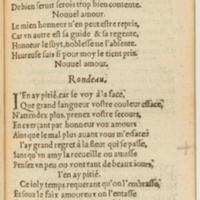 De bien seruir serois trop bien contente.
Nouuel amour.
Le mien honneur n'en peut estre repris,
Car vn autre est sa guide & sa regente,
Honneur le suyt, noblesse ne l'absente.
Heureuse suis si pour moy le tient pris.
Nouuel amour.
Rondeau.
I'En ay pitié, car ie voy à la face,
Que grand langueur vostre couleur efface,
N'attendez plus, prenez vostre secours,
En exerçant par honneur vos amours
Ains que le mal plus auant vous m'efface
I'ay grand regret à la fleur qui se passe,
Sans qu'vn amy la recueille ou auisse
Pensez vn peu ou vont tant de beaux iours,
I'en ay pitié.
Ce ioly temps requerant qu'on l'embrasse,
Et sous le faix amoureux on l'entasse